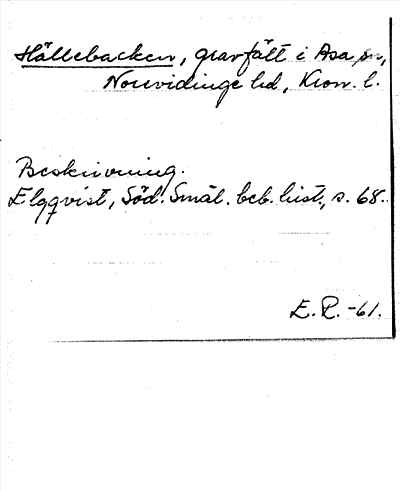 Hällebacken, gravfält i Asa sn,
Norrvidinge hd, Kron. l.
Beskrivning.
Elgqvist, Söd. Smål. beb. hist., s. 68.
E. P. -61.